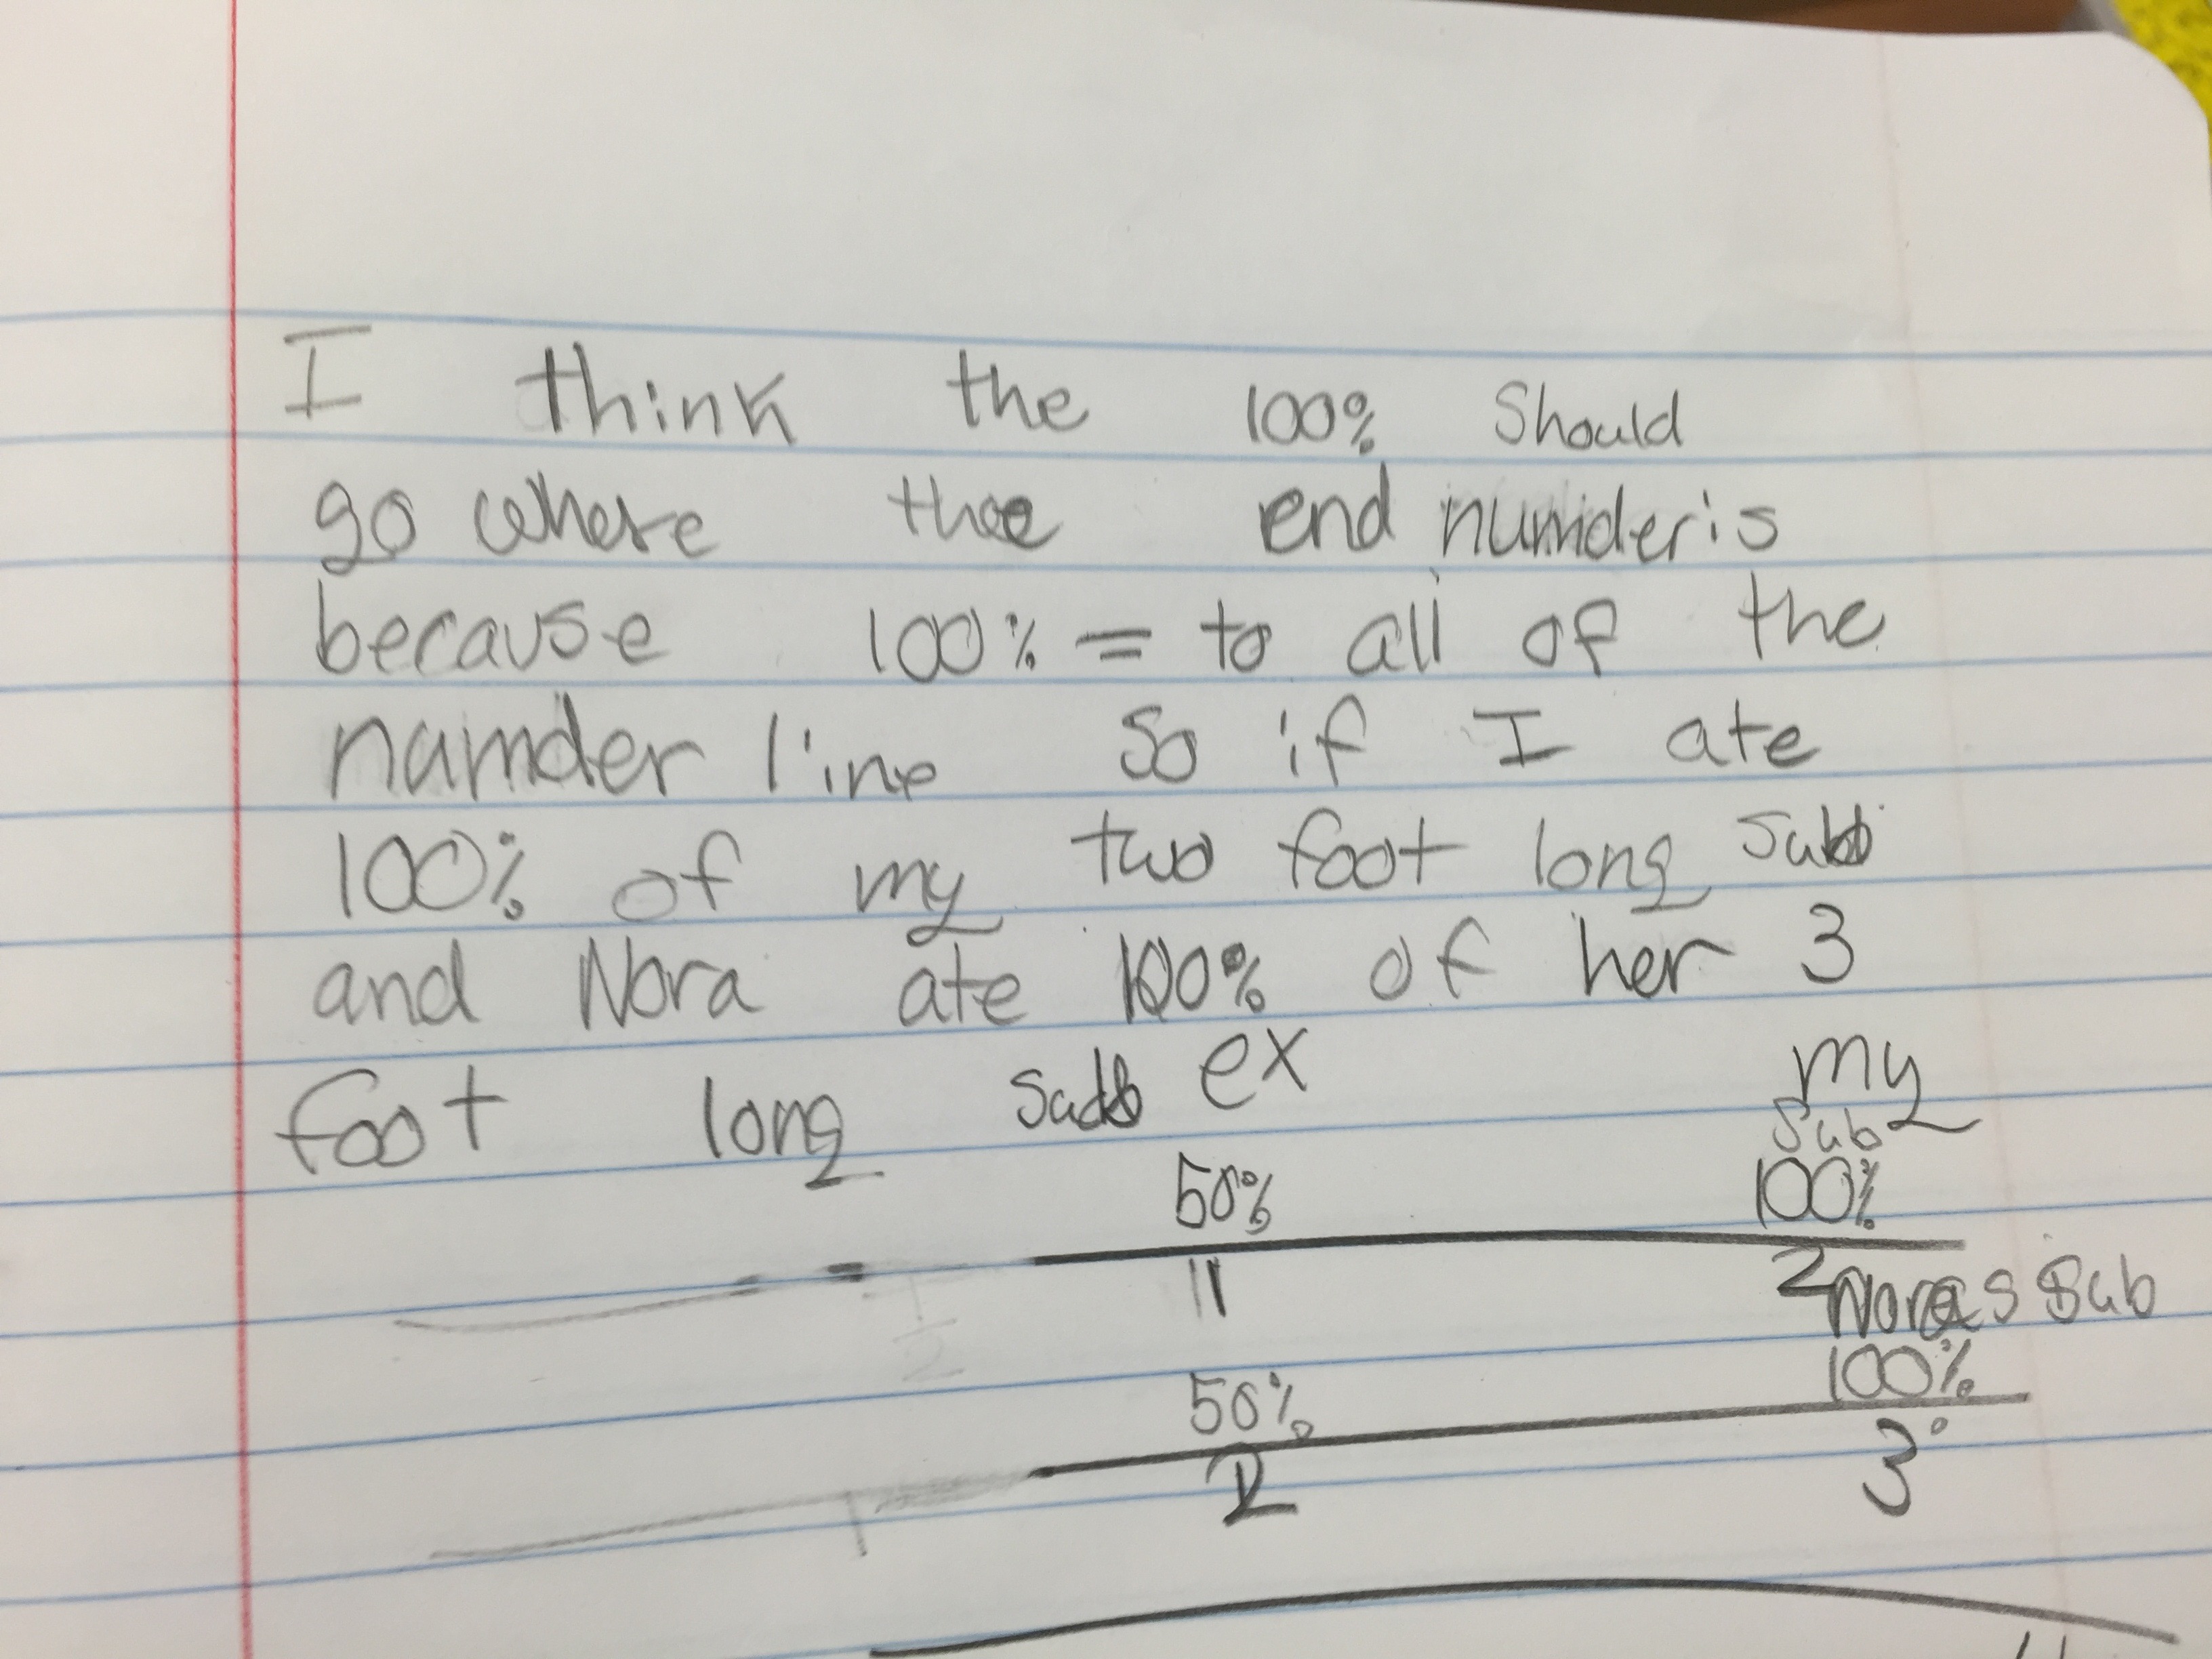 I think the 100% Should
go where the end numder is
because 100% = to all of the
numder line So if I ate
100% of my two foot long Sub
and Nora ate 100% of her 3
foot long Sub ex
my
Sub
50% 100%
1 2
Noras Sub
50% 100%
3